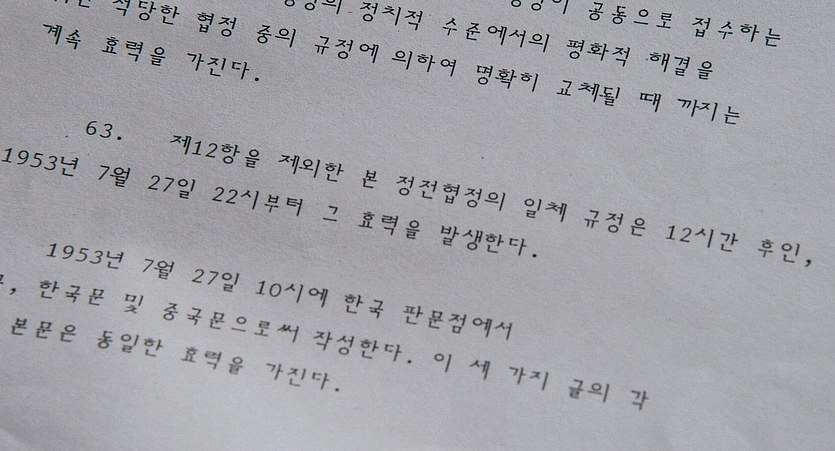 공동으로 접수하는
적당한 협정 중의 정치적 수준에서의 평화적 해결을
계속 효력을 가진다. 규정에 의하여 명확히 교체될 때 까지는
63. 제12항을 제외한 본 정전협정의 일체 규정은 12시간 후인,
1953년 7월 27일 22시부터 그 효력을 발생한다.
1953년 7월 27일 10시에 한국 판문점에서
한국문 및 중국문으로써 작성한다. 이 세 가지 글의 각
본문은 동일한 효력을 가진다.